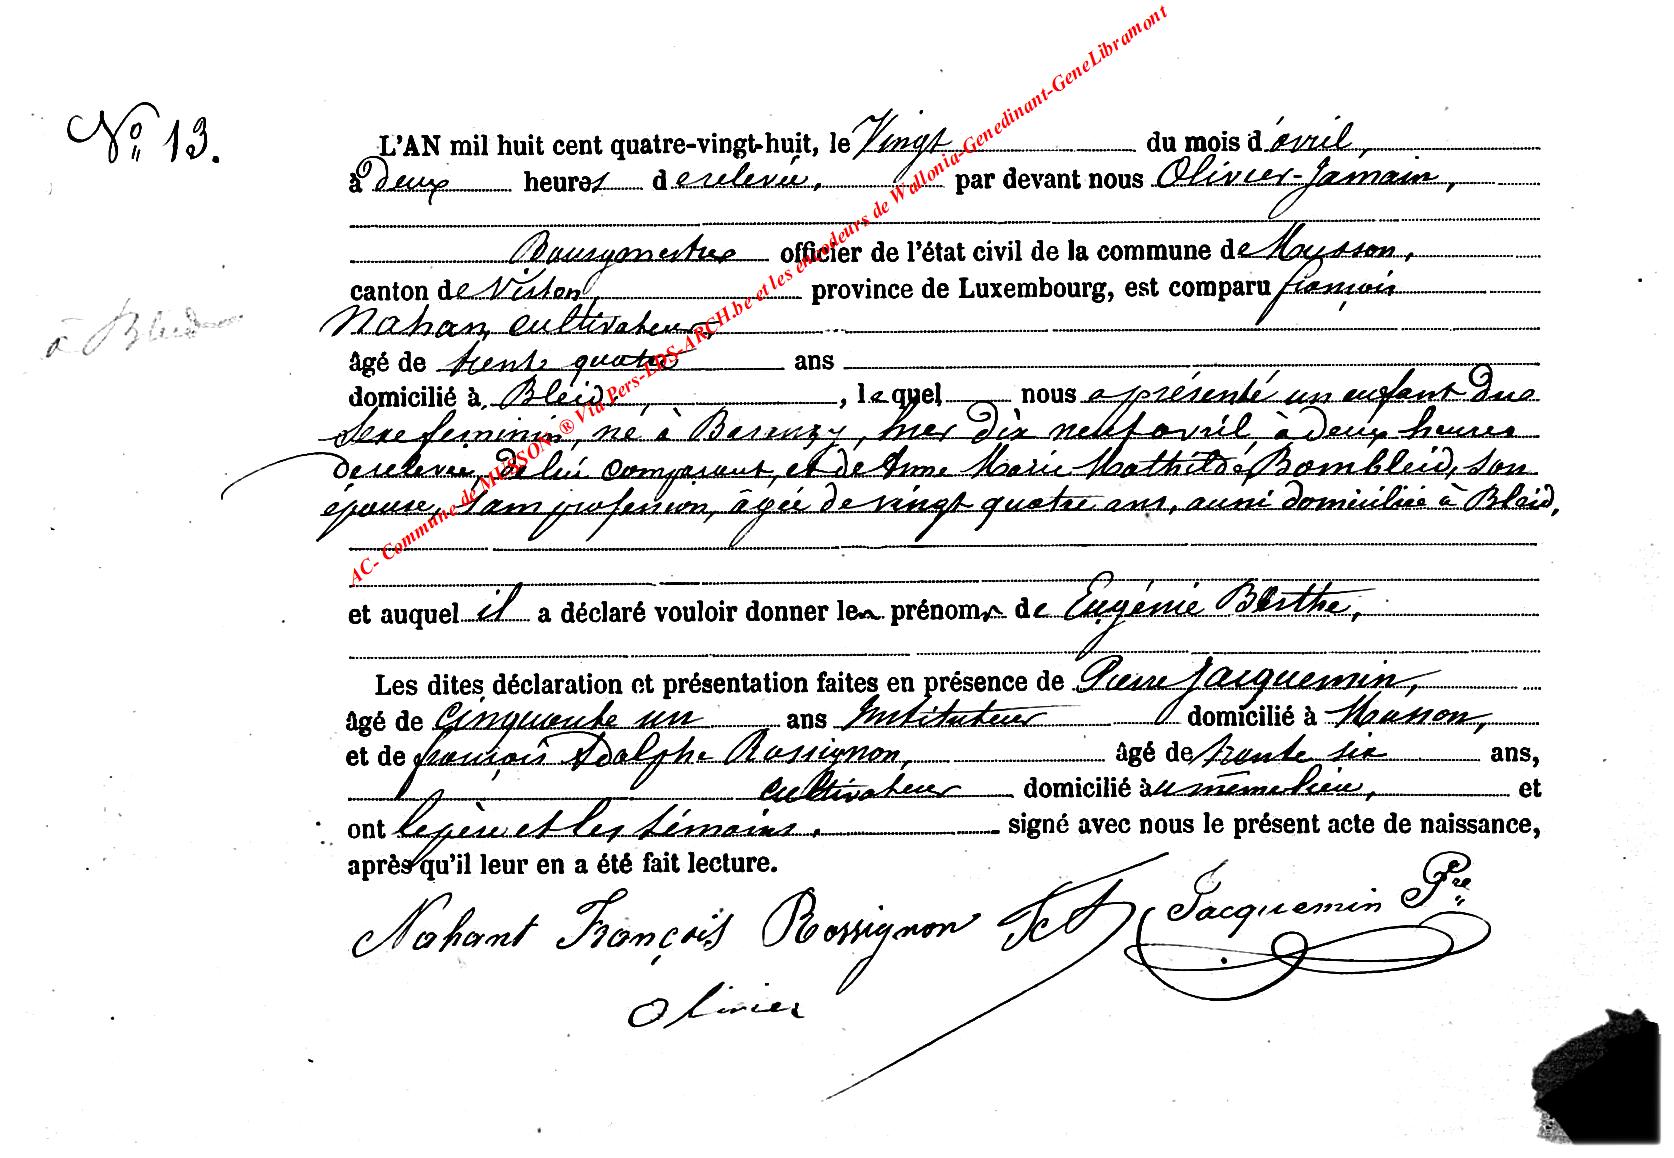 No 13.
L'AN mil huit cent quatre-vingt-huit, le Vingt du mois d'avril,
à deux heures de relevée, par devant nous Olivier-Jamain,
Bourgmestre officier de l'état civil de la commune de Musson,
canton de Virton, province de Luxembourg, est comparu françois
Nahan, cultivateur,
à Bleid
âgé de trente quatre ans
domicilié à Bleid, lequel nous a présenté un enfant du
sexe féminin, né à Baranzy, hier dix neuf avril, à deux heures
de relevée, de lui comparant, et de Anne Marie Mathilde Bombleid, son
épouse, sans profession, âgée de vingt quatre ans, aussi domiciliée à Bleid.
et auquel il a déclaré vouloir donner les prénoms de Eugénie Berthe,
Les dites déclaration et présentation faites en présence de Pierre Jacquemin,
âgé de cinquante un ans Instituteur domicilié à Musson,
et de françois Adolphe Rossignon, âgé de trente six ans,
cultivateur domicilié au même lieu, et
ont le père et les témoins, signé avec nous le présent acte de naissance,
après qu'il leur en a été fait lecture.
Nahant François Rossignon Jacquemin Pre
Olivier
AC- Commune de MUSSON ® Via Pers-LDS-ARCH.be et les encodeurs de Wallonia-Genedinant-GeneLibramont